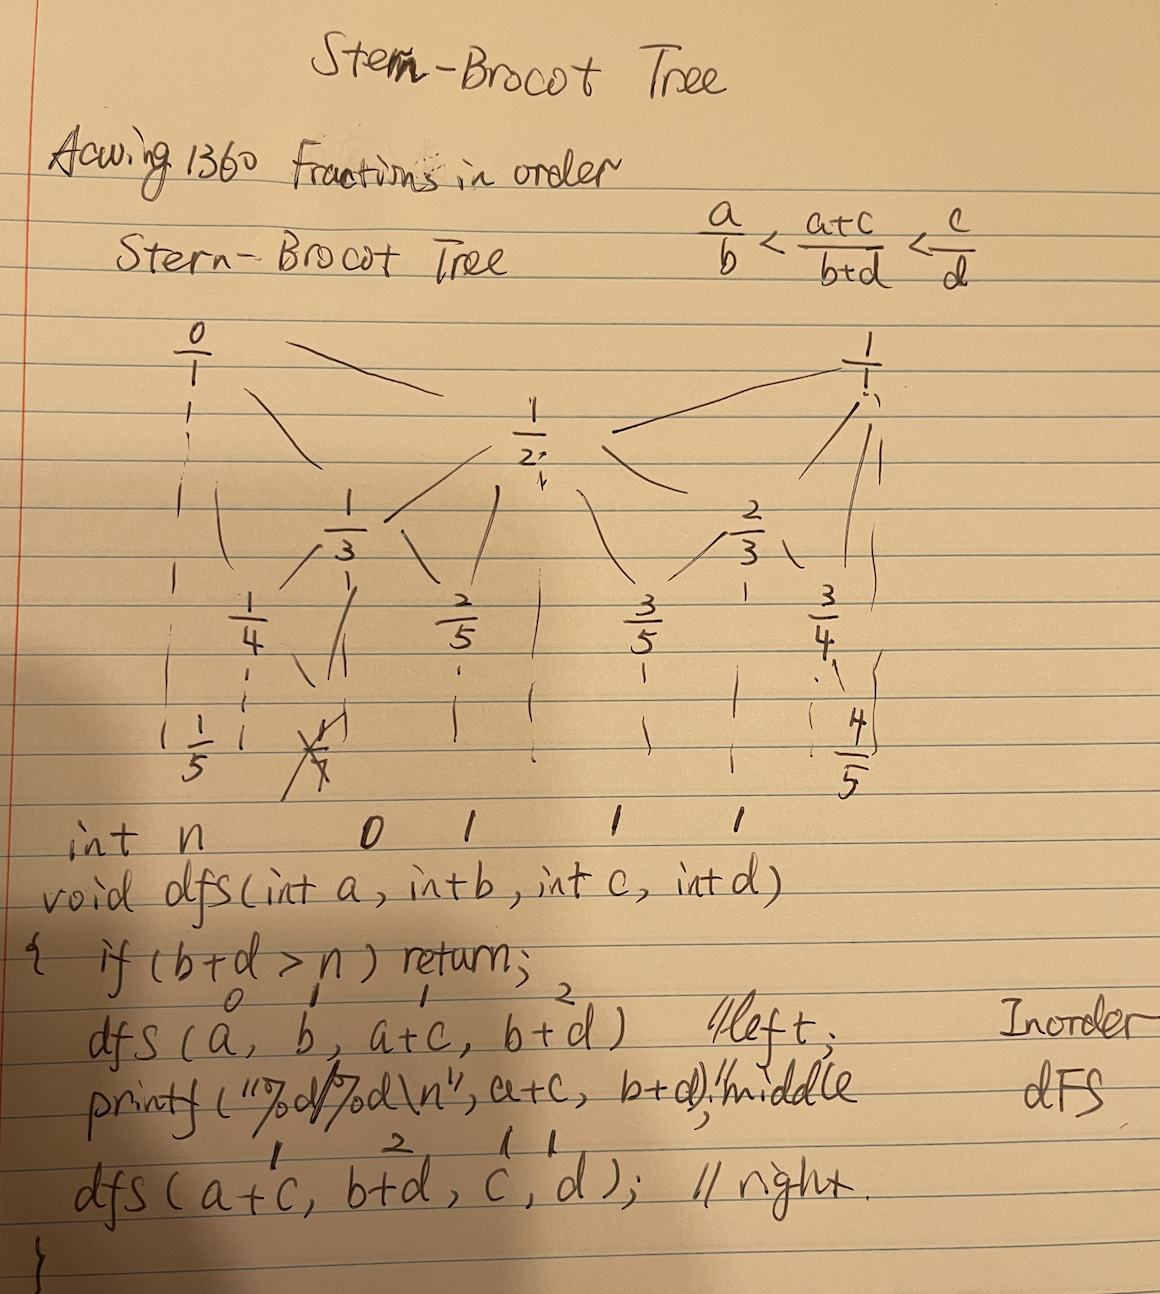 Stern-Brocot Tree
Acwing 1360 Fractions in order
Stern-Brocot Tree a/b < a+c/b+d < c/d
0/1 1/1
1/2
1/3 2/3
1/4 2/5 3/5 3/4
1/5 4/5
int n 0 1 1 1
void dfs(int a, int b, int c, int d)
{ if (b+d > n) return;
0 1 1 2
dfs (a, b, a+c, b+d) //left; Inorder
printf ("%d/%d\n", a+c, b+d); //middle dFS
1 2 1 1
dfs (a+c, b+d, c, d); // right.
}